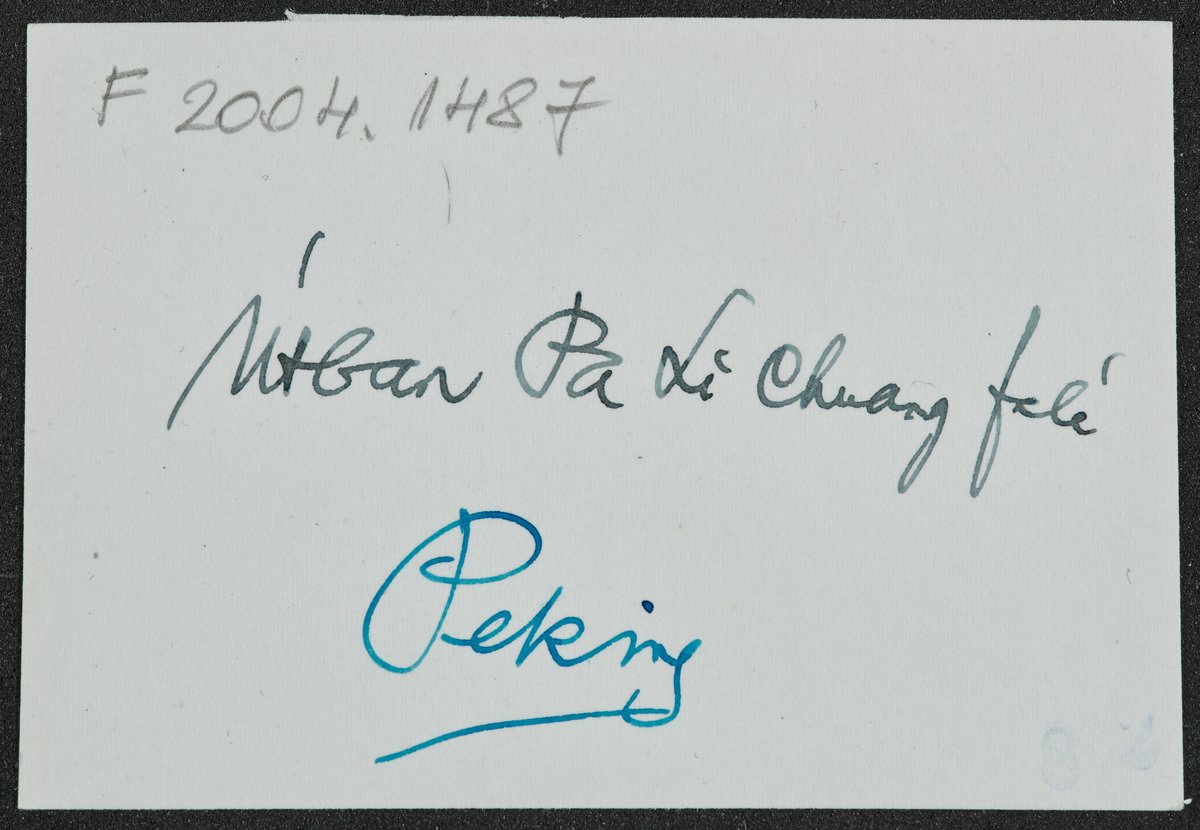 F 2004.1487
Útban Pa Li Chuang felé
Peking